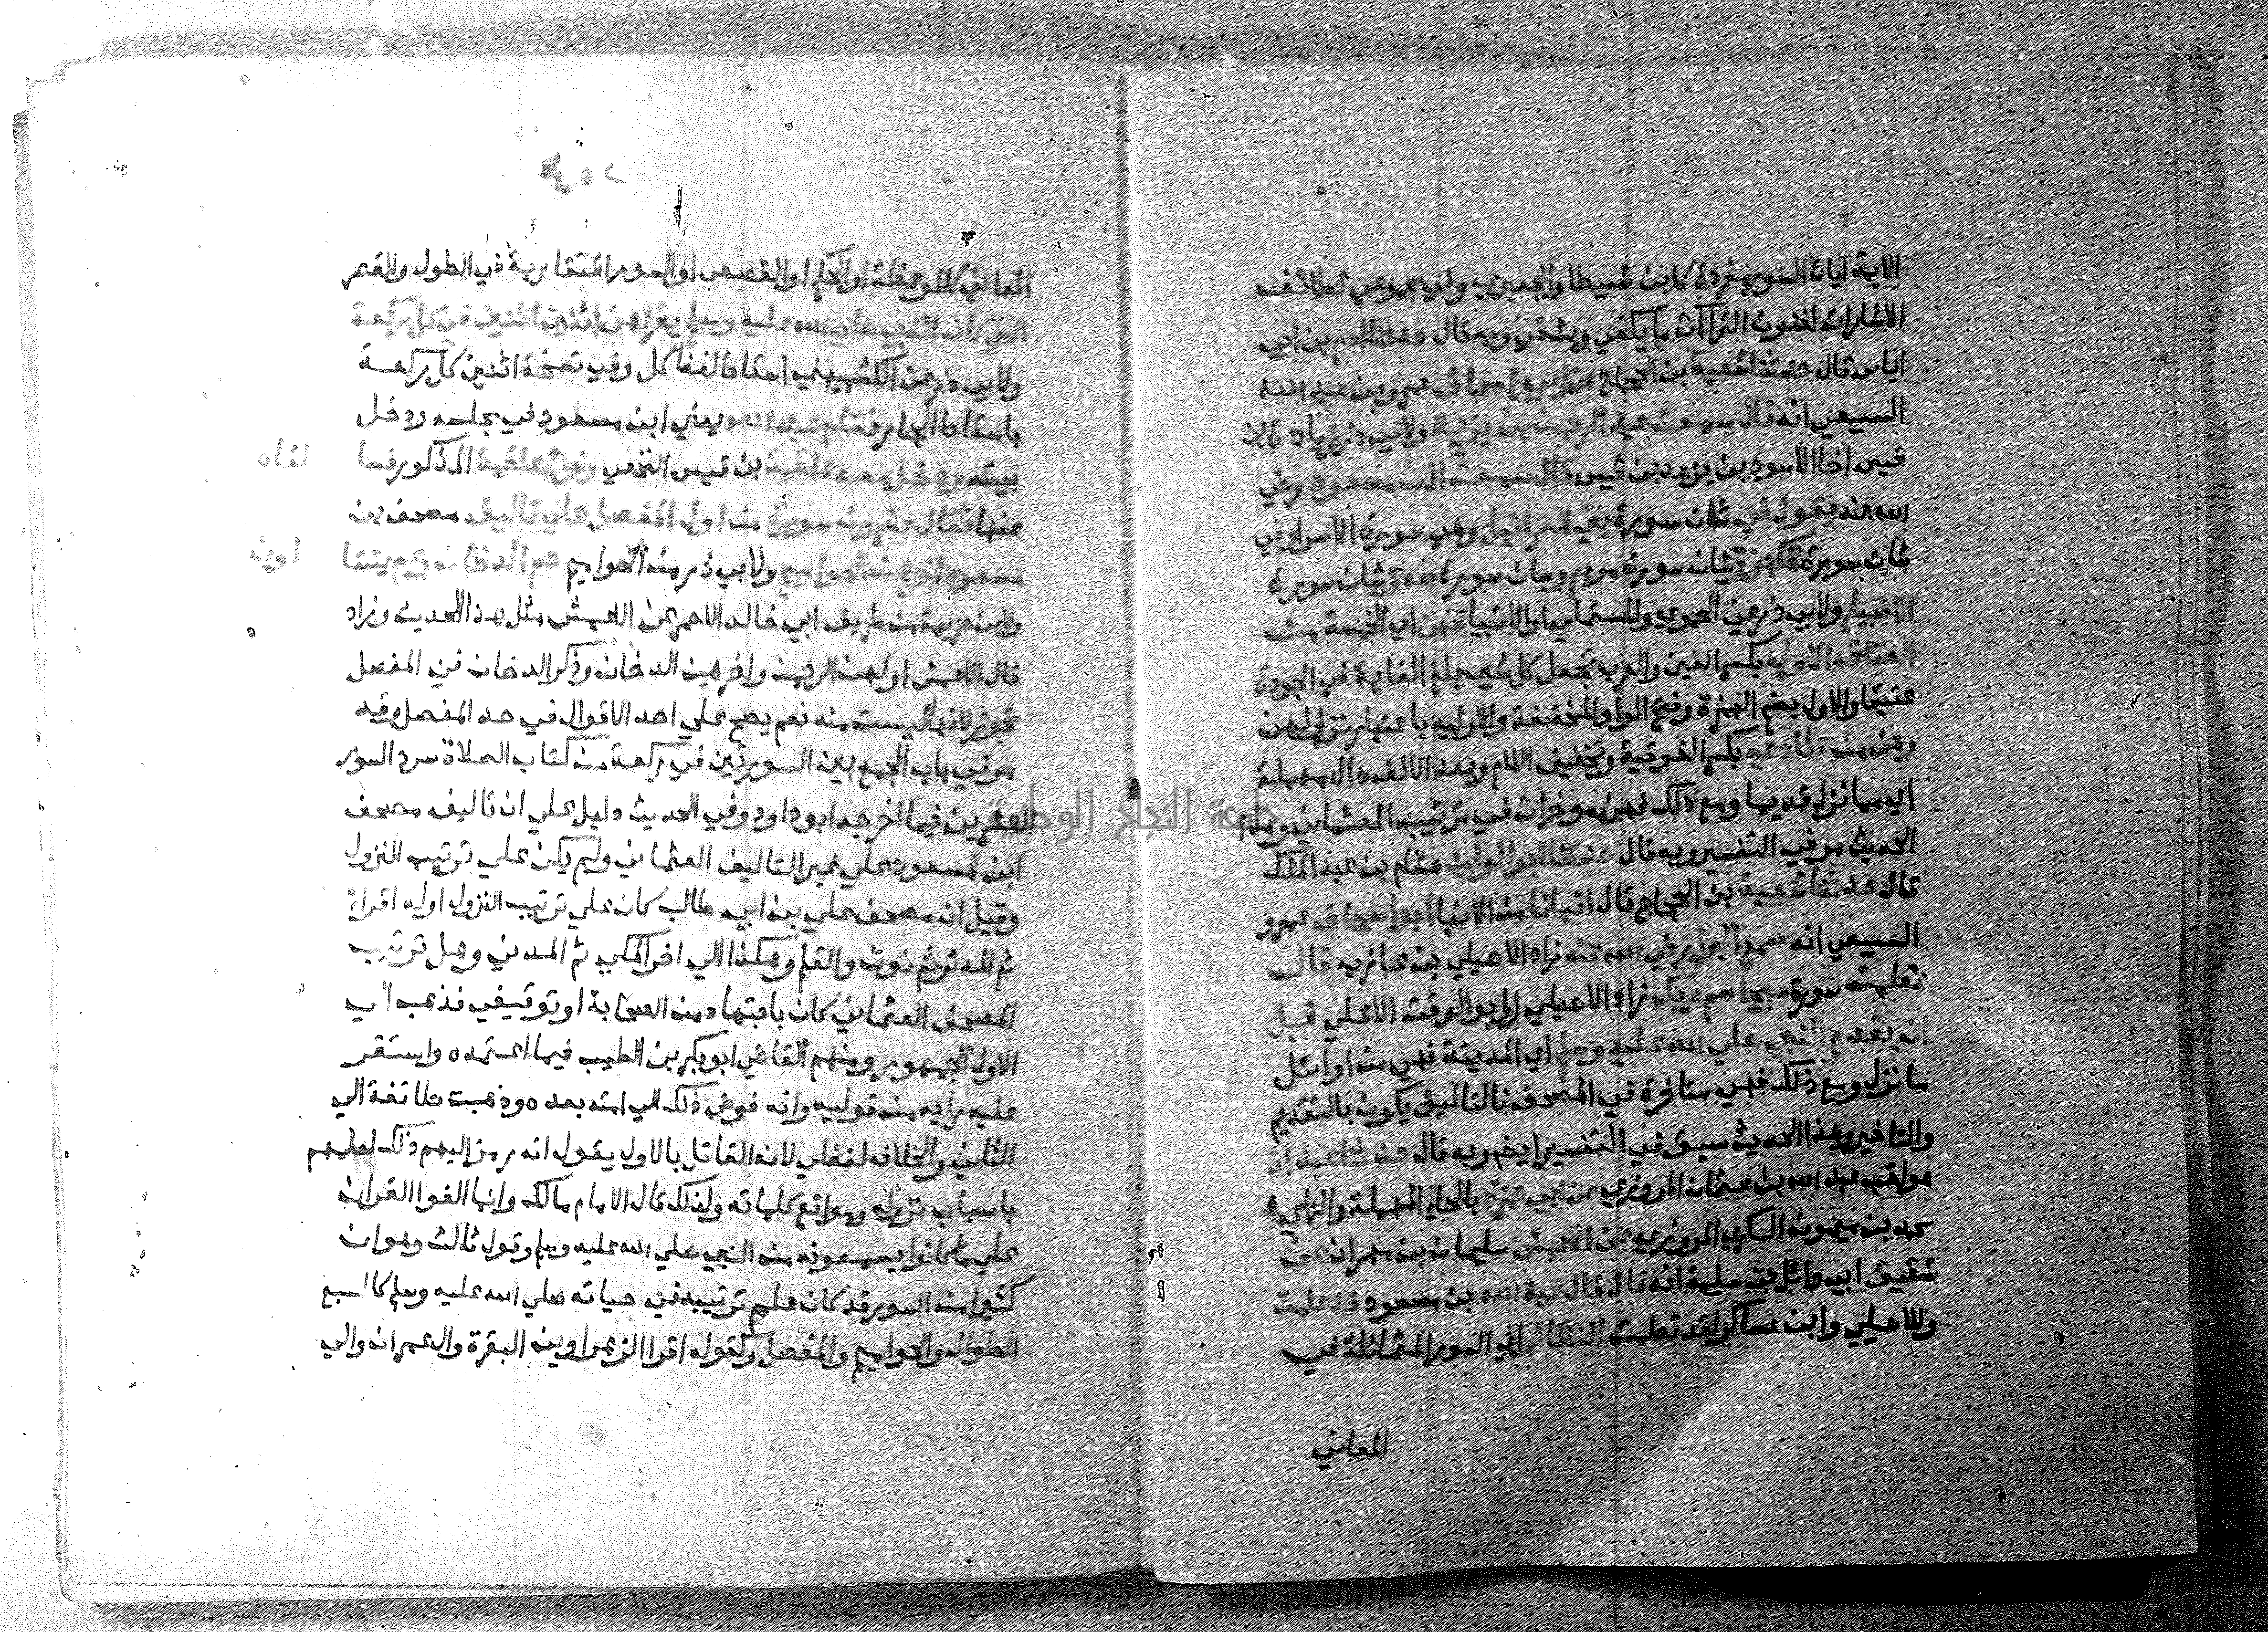 الاية ايات السور مفردة كابن شيطا والجعبري وفي مجموعي لطائف
الاشارات لفنون القراآت ما يكفي ويشفي وبه قال حدثنا ادم بن ابي
اياس قال حدثنا شعبة بن الحجاج عن ابي اسحاق عمرو بن عبد الله
السبيعي انه قال سمعت عبد الرحمن بن يزيد ولابي ذر زيادة بن
قيس اخا الاسود بن يزيد بن قيس قال سمعت ابن مسعود رضي
الله عنه يقول في شان سورة بني اسرائيل وهي سورة الاسرا وفي
شان سورة الكهف وشان سورة مريم وشان سورة طه وشان سورة
الانبيا ولابي ذر عن الحموي والمستملي والانبيا انهن اي الخمسة من
العتاق الاول بكسر العين والعرب تجعل كل شي بلغ الغاية في الجودة
عتيقا والاول بضم الهمزة وفتح الواو المخففة والاوليه باعتبار نزولهن
وهن من تلادي بكسر الفوقية وتخفيف اللام وبعد الالف دال مهملة
اي مما نزل قديما ومع ذلك فهن موخرات في ترتيب العثماني وهذا
الحديث مر في التفسير وبه قال حدثنا ابو الوليد هشام بن عبد الملك
قال حدثنا شعبة بن الحجاج قال انبانا من الانبا ابو اسحاق عمرو
السبيعي انه سمع البرا رضي الله عنه زاد الاصيلي بن عازب قال
تعلمت سورة سبح اسم ربك زاد الاصيلي وابو الوقت الاعلى قبل
ان يقدم النبي صلي الله عليه وسلم اي المدينة فهي من اوائل
ما نزل ومع ذلك فهي متاخرة في المصحف فالتاليف يكون بالتقديم
والتاخير وهذا الحديث سبق في التفسير ايضم وبه قال حدثنا عبدان
هو لقب عبد الله بن عثمان المروزي عن ابي حمزة بالحا المهملة والزاي
محمد بن ميمون السكري المروزي عن الاعمش سليمان بن مهران عن
شقيق ابي وائل بن سلمة انه قال قال عبد الله بن مسعود قد علمت
وللاصيلي وابن عساكر لقد تعلمت النظائر اي السور المتماثلة في
المعاني
٢٥٤
المعاني كالموعظة او الحكم او القصص او السور المتقاربة في الطول والقصر
التي كان النبي صلي الله عليه وسلم يقراهن اثنين اثنين في كل ركعة
ولابي ذر عن الكشميهني اسقاط لفظ كل وفي نسخة اثنين كل ركعة
باسقاط الجار فقام عبد الله يعني ابن مسعود في مجلسه ودخل
بيته ودخل معه علقمة بن قيس النخعي وخرج علقمة المذكور فسا لناه
عنها فقال عشرون سورة من اول المفصل علي تاليف مصحف بن
مسعود اخرهن الحواميم ولابي ذر من الحواميم حم الدخان وعم يتسا لون
ولابن خزيمة من طريق ابي خالد الاحمر عن الاعمش مثل هذا الحديث وزاد
قال الاعمش اولهن الرحمن واخرهن الدخان وذكر الدخان في المفصل
تجوز لانها ليست منه نعم يصح علي احد الاقوال في حد المفصل وقد
مر في باب الجمع بين السورتين في ركعة من كتاب الصلاة سرد السور
العشرين فيما اخرجه ابو داود وفي الحديث دليل علي ان تاليف مصحف
ابن مسعود علي غير التاليف العثماني ولم يكن علي ترتيب النزول
وقيل ان مصحف علي بن ابي طالب كان علي ترتيب النزول اوله اقرا
ثم المدثر ثم نون والقلم وهكذا الي اخر المكي ثم المدني وهل ترتيب
المصحف العثماني كان باجتهاد من الصحابة او توقيفي فذهب الي
الاول الجمهور ومنهم القاضي ابو بكر بن الطيب فيما اعتمده واستقر
عليه رايه من قوليه وانه فوض ذلك الي امته بعده وذهبت طائفة الي
الثاني والخلاف لفظي لان القائل بالاول يقول انه رمز اليهم ذلك لعلمهم
باسباب نزوله ومواقع كلماته ولذلك قال الامام مالك وانما الفوا القران
علي ما كانوا يسمعونه من النبي صلي الله عليه وسلم وقول ثالث وهو ان
كثيرا من السور قد كان علم ترتيبه في حياته صلي الله عليه وسلم كالسبع
الطوال والحواميم والمفصل وكقوله اقرا الزهراوين البقرة وال عمران والي
جامعة النجاح الوطنية